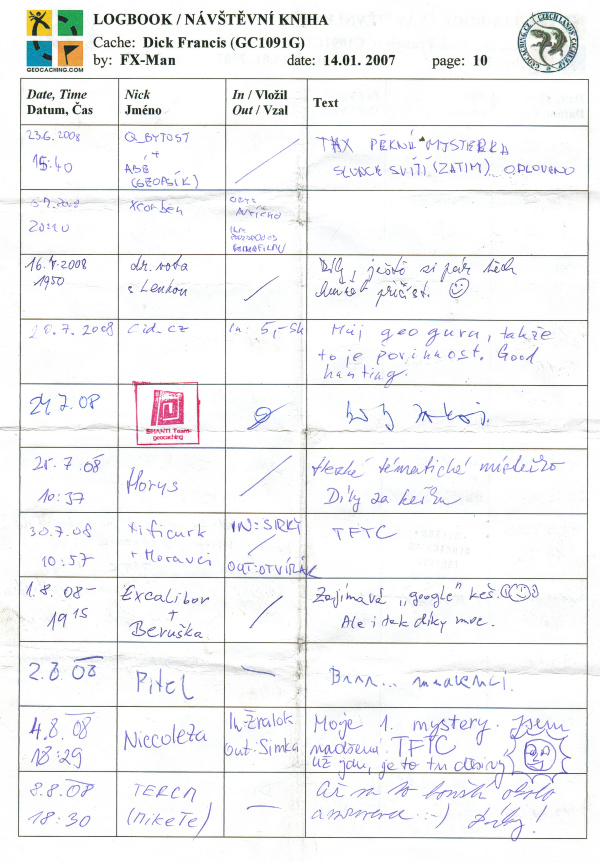 LOGBOOK / NÁVŠTĚVNÍ KNIHA
Cache: Dick Francis (GC1091G)
by: FX-Man date: 14.01. 2007 page: 10
GEOCACHING.COM
Date, Time Nick In / Vložil Text
Datum, Čas Jméno Out / Vzal
23.6.2008 Q_BYTOST THX PĚKNÁ MYSTERKA
15:40 + ABÉ (GEOPSÍK) SLUNCE SVÍTÍ (ZATIM) ODLOVENO
2008 xcorben
20:10
16.7.2008 dr. nota Díky, ještě si pár těch
1950 s Lenkou přičíst.
7. 2008 Cid.cz In: 5,- Sk Můj geo guru, takže
to je povinnost. Good
hunting.
7.08 SHANTI Team-
geocaching
25.7.08 Horys Hezké tématické místečko
10:37 Díky za kešku
30.7.08 Xificurk IN: SIRKY TFTC
10:57 + Moravci OUT: OTVÍRÁK
1.8. 08 - Excalibor Zajímavá „google" keš.
19 15 + Beruška Ale i tak díky moc.
2.8.08 Pitel Brrr...
4.8.08 Niccoleza In: Žralok Moje 1. mystery. Jsem
18:29 out: Simka nadšená. TFTC
už jdu, je to tu
8.8.08 TERCM
18:30 (MikeTe) :-) Díky!